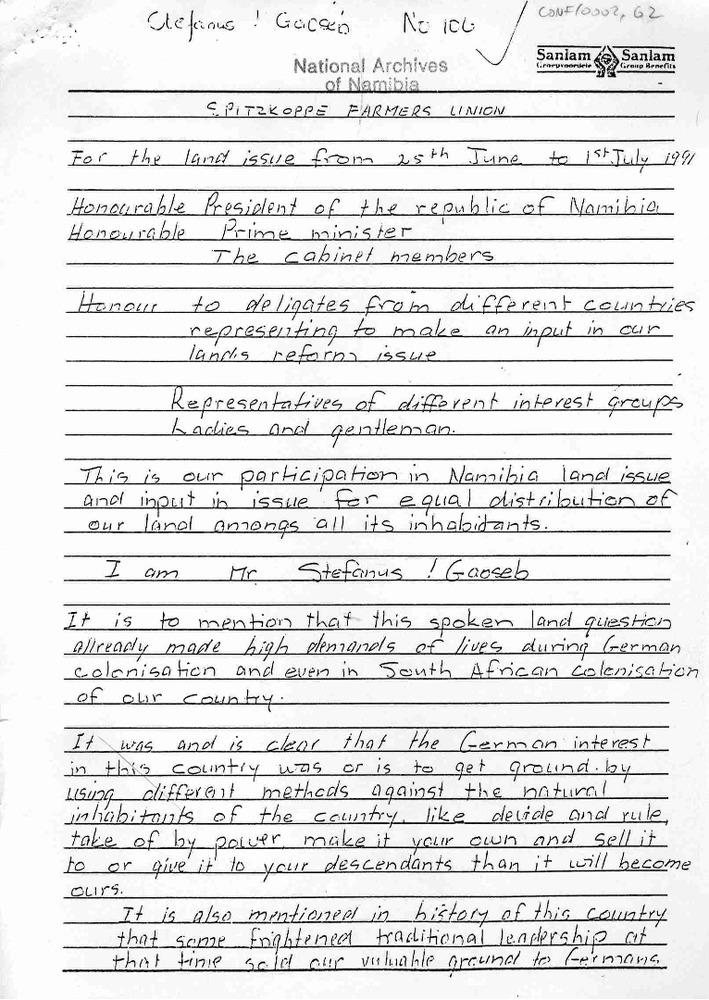 Stefanus ! Gaoseb No 106
CONF/0002, G2
Sanlam Sanlam
Groepvoordele Group Benefits
National Archives
of Namibia
SPITZKOPPE FARMERS UNION
For the land issue from 25th June to 1st July 1991
Honourable President of the republic of Namibia
Honourable Prime minister
The cabinet members
Honour to deligates from different countries
representing to make an input in our
lands reform issue
Representatives of different interest groups
Ladies and gentleman.
This is our participation in Namibia land issue
and input in issue for equal distribution of
our land amongs all its inhabitants.
I am Mr Stefanus ! Gaoseb
It is to mention that this spoken land question
allready made high demands of lives during German
colonisation and even in South African colonisation
of our country.
It was and is clear that the German interest
in this country was or is to get ground. by
using different methods against the natural
inhabitants of the country, like devide and rule,
take of by power, make it your own and sell it
to or give it to your descendants than it will become
ours.
It is also mentioned in history of this country
that some frightened traditional leadership at
that time sold our valuable ground to Germans